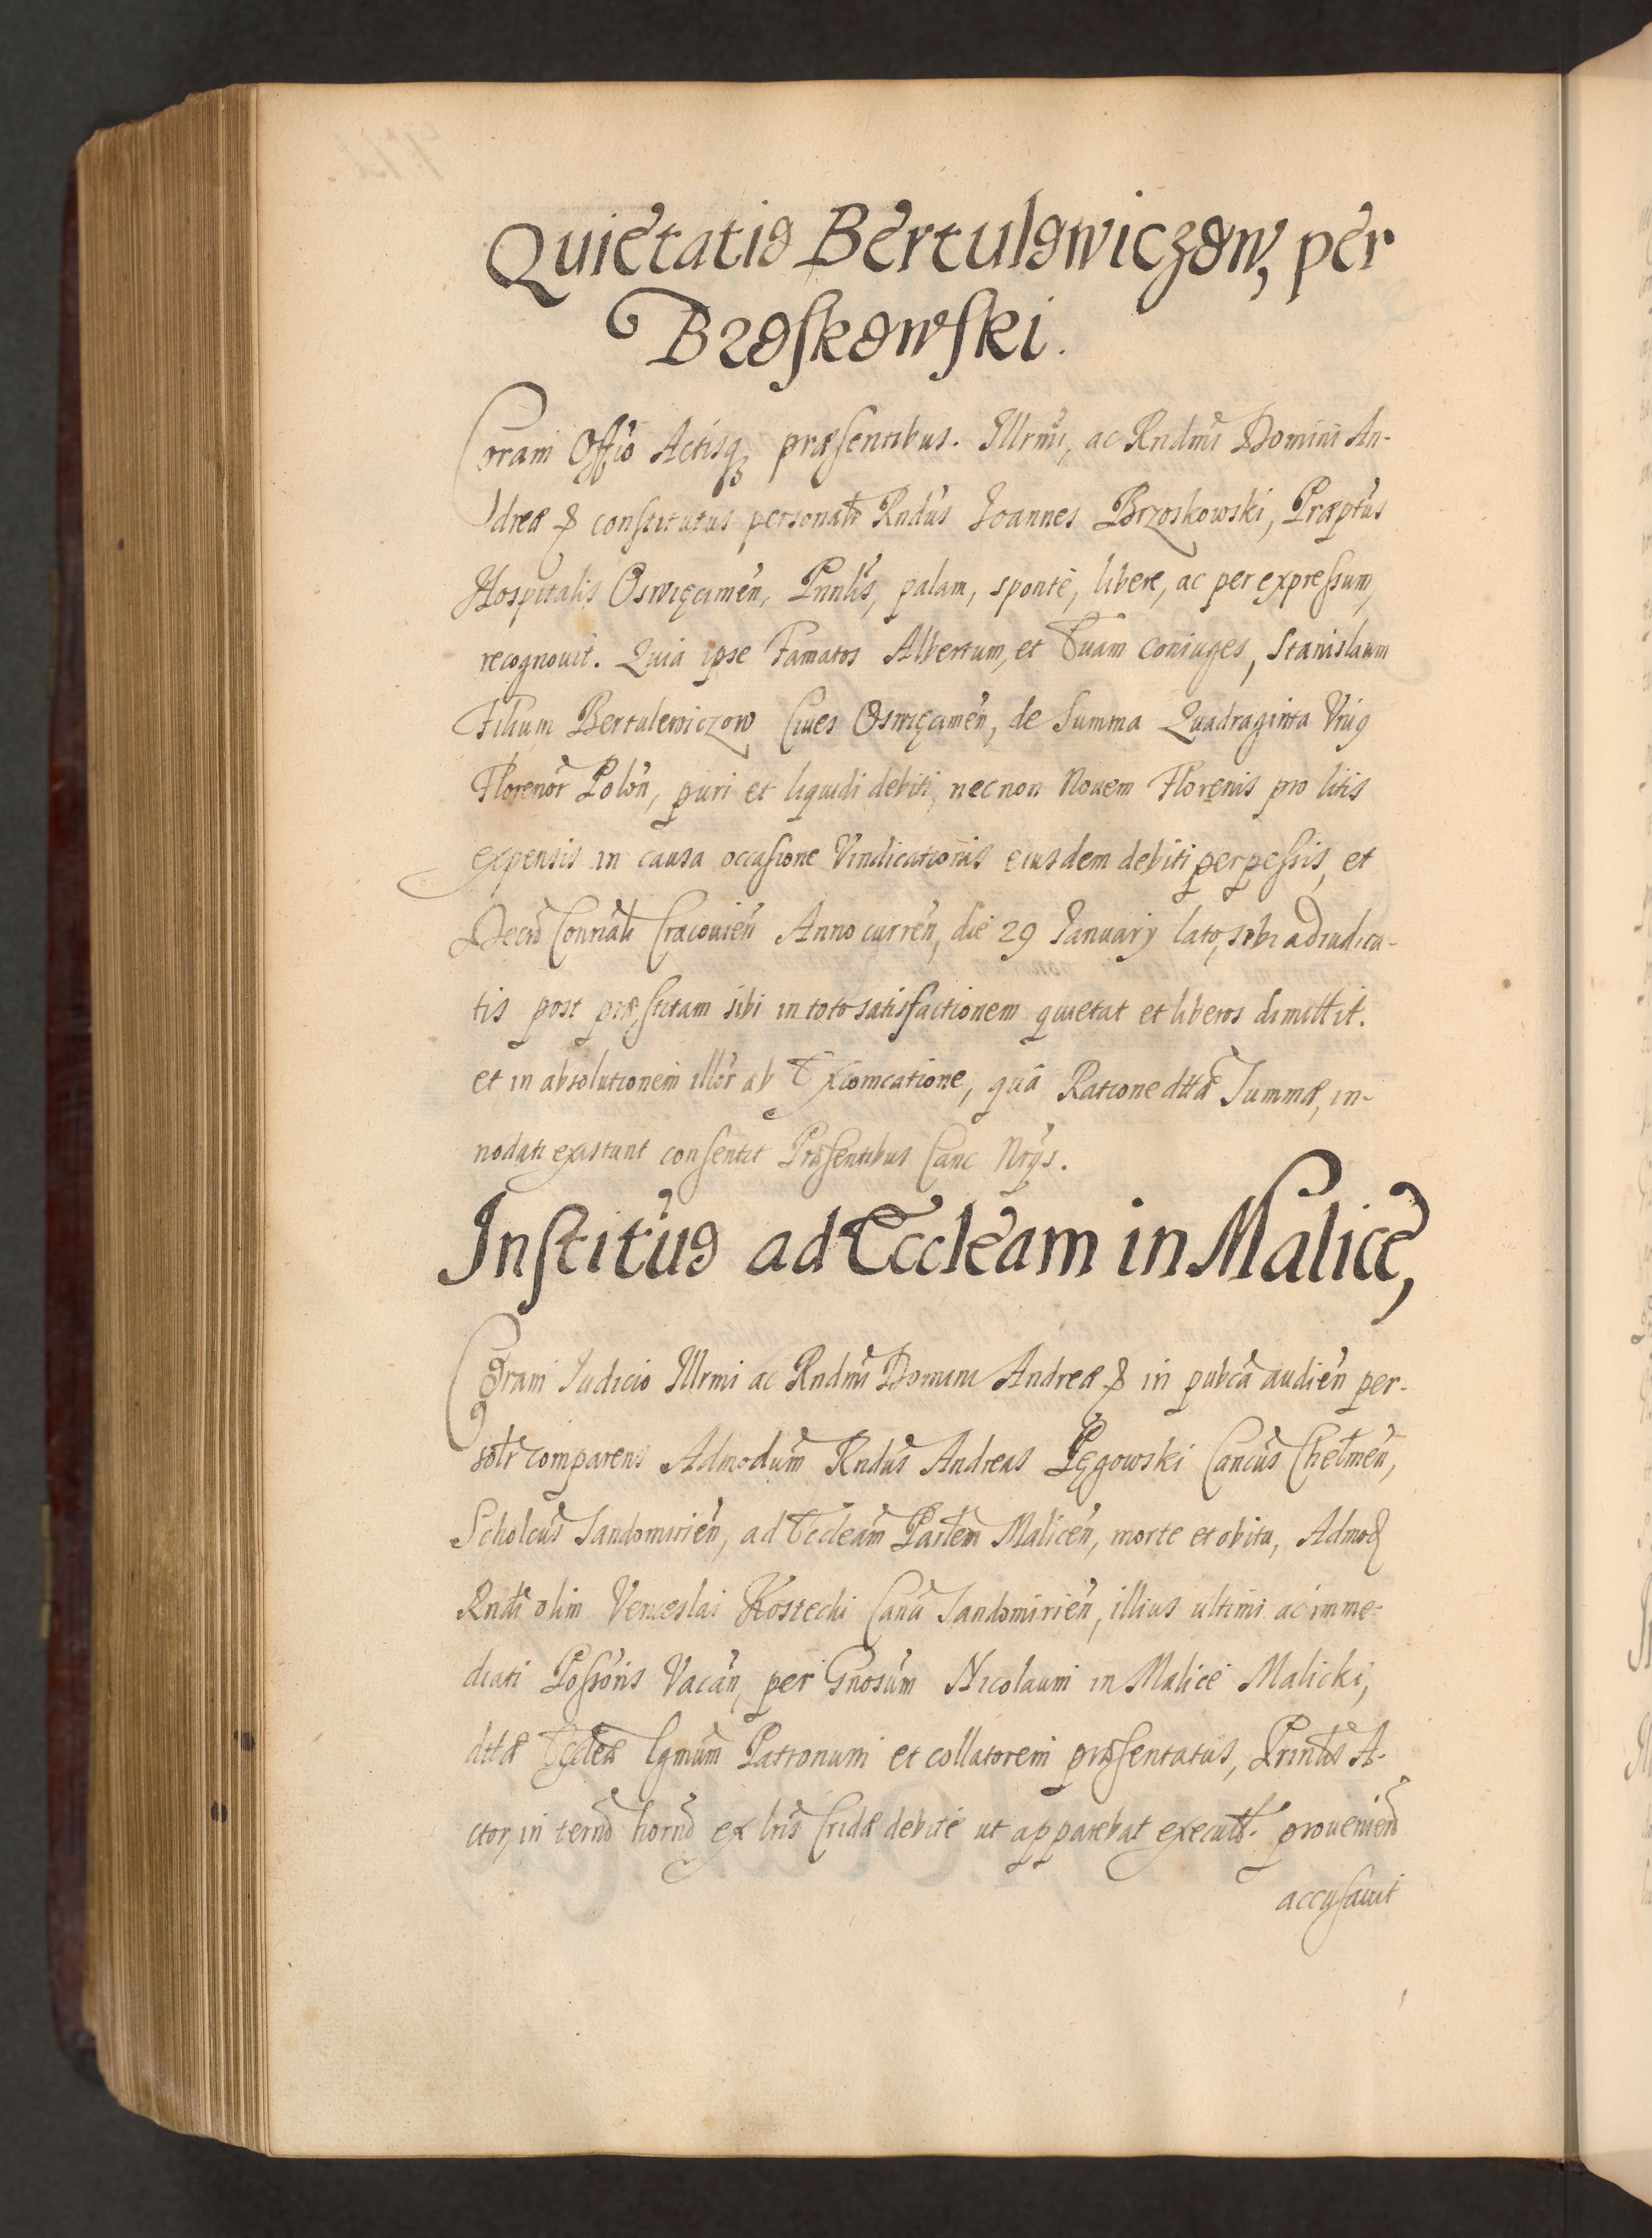 Quietatio Bertulowiczow, per
Brzoskowski.
Coram Offio Actisq, præsentibus. Illrmi, ac Rndmi Domini An-
dreæ & constitutus personalr Rndus Joannes Brzoskowski, Præptus
Hospitalis Oswięcimen, Pnnlis, palam, sponte, libere, ac per expressum,
recognouit. Quia ipse Famatos Albertum, et Euam coniuges, Stanislaum
Filium Bertulewiczow Ciues Oswięcimen, de Summa Quadraginta Vnius
Florenor Polon, puri et liquidi debiti, necnon Nouem Florenis pro litis
expensis in causa occasione Vindicationis eiusdem debiti perpessis, et
Decto Connali Cracouien Anno curren, die 29 January lato, sibi adiudica-
tis post præstitam sibi in toto satisfactionem quietat et liberos dimittit.
et in absolutionem illor ab Excomcatione, quâ Ratione dttæ Summæ, in-
nodati existunt consentit Præsentibus Canc Nrijs.
Institus ad Eccleam in Malice,
Coram Judicio Illrmi ac Rndmi Domini Andreæ & in pubca audien per-
solr comparens Admodum Rndus Andreas Pęgowski Cancus Chelmen,
Scholcus Sandomirien, ad Eccleam Parlem Malicen, morte et obitu, Admod
Rndi olim Venceslai Kostecki Canci Sandomirien, illius ultimi ac imme-
diati Possoris Vacan, per Gnosum Nicolaum in Malice Malicki,
dttæ Eccleæ lgmum Patronum et collatorem præsentatus, Prinlis A-
ctor, in termo horno ex lris Cridæ debite ut apparebat executt. prouenien
accusauit